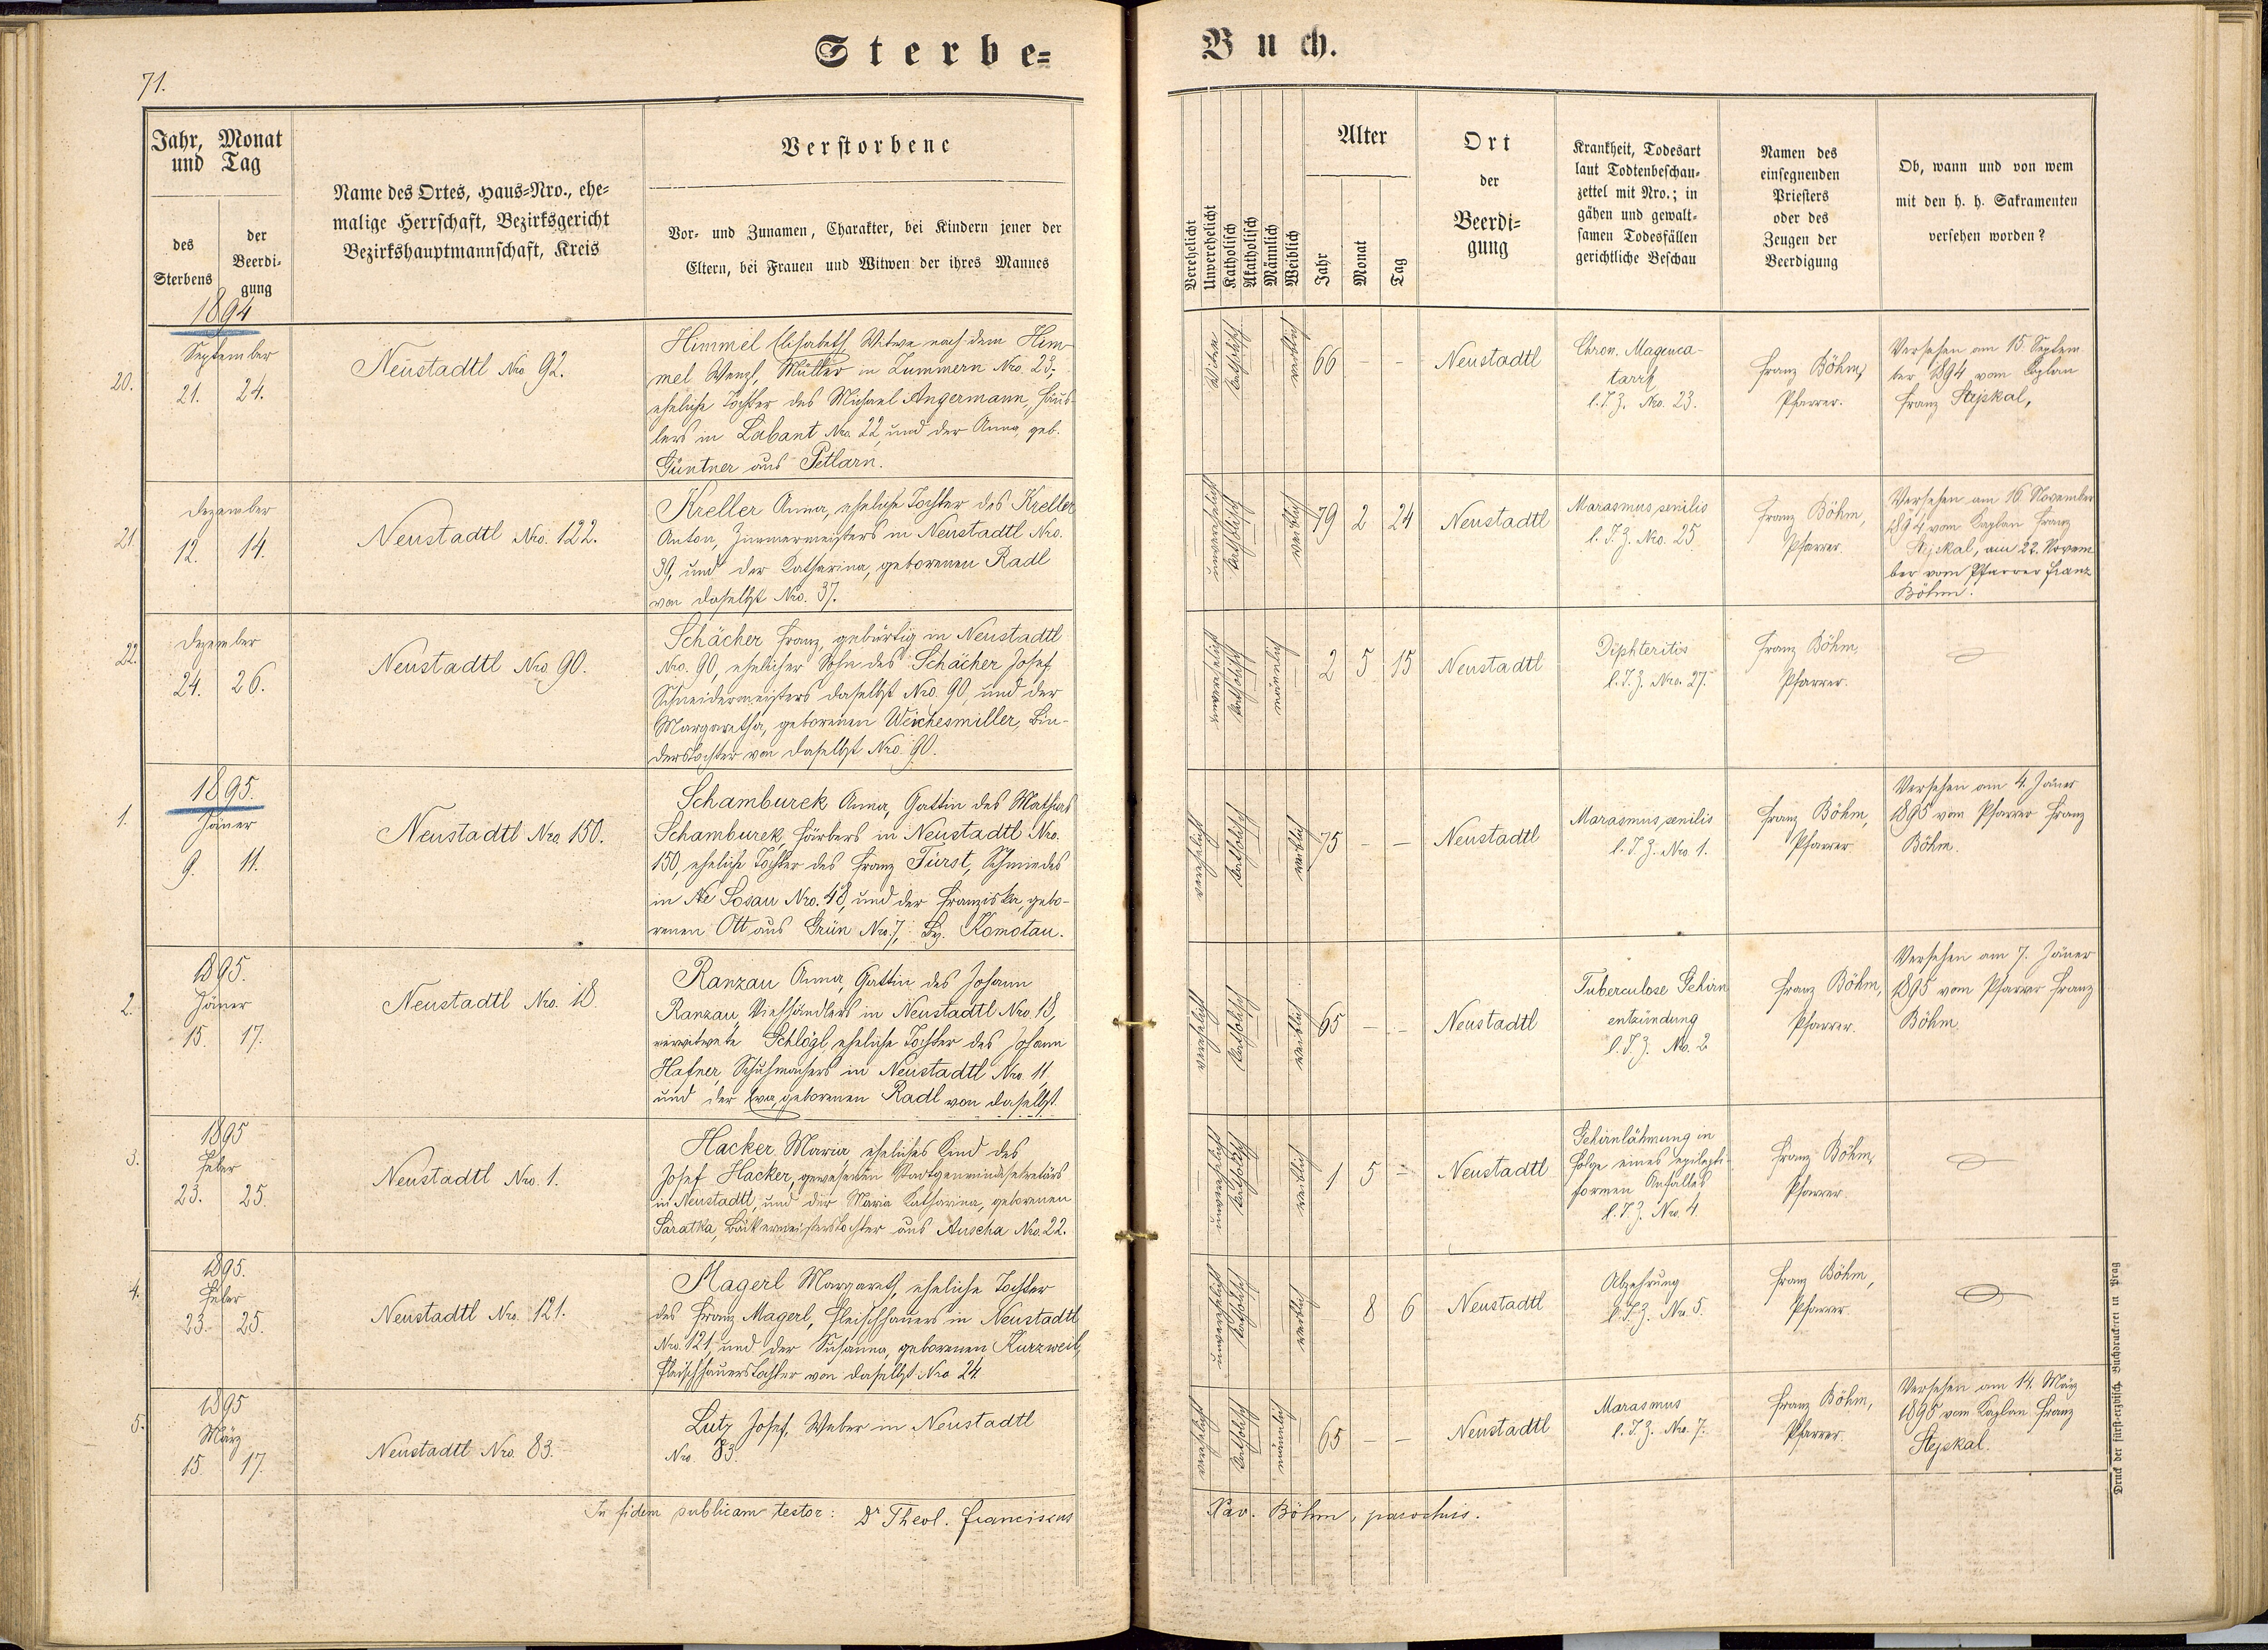 Sterbe=
Buch.
71.
Jahr, Monat
und Tag
des
Sterbens
der
Beerdi-
gung
Name des Ortes, Haus=Nro., ehe=
malige Herrschaft, Bezirksgericht
Bezirkshauptmannschaft, Kreis
Verstorbene
Vor- und Zunamen, Charakter, bei Kindern jener der
Eltern, bei Frauen und Witwen der ihres Mannes
Verehelicht
Unverehelicht
Katholisch
Akatholisch
Männlich
Weiblich
Alter
Jahr
Monat
Tag
Ort
der
Beerdi=
gung
Krankheit, Todesart
laut Todtenbeschau-
zettel mit Nro.; in
gähen und gewalt-
samen Todesfällen
gerichtliche Beschau
Namen des
einsegnenden
Priesters
oder des
Zeugen der
Beerdigung
Ob, wann und von wem
mit den h. h. Sakramenten
versehen worden?
1894
20.
September
21. 24.
Neustadtl Nro 92.
Himmel Elisabeth Witwe nach dem Him-
mel Wenzl, Müller in Zummern Nro. 23,
eheliche Tochter des Michael Angermann, Häus-
lers in Labant Nro. 22, und der Anna, geb.
Güntner aus Petlarn.
Witwe
katholisch
weiblich
66 - -
Neustadtl
Chron. Magenca-
tarrh
l. T. Z. Nro. 23.
Franz Böhm,
Pfarrer.
Versehen am 15. Septem-
ber 1894 vom Kaplan
Franz Stejskal,
21.
Dezember
12. 14.
Neustadtl Nro. 122.
Kreller Anna, eheliche Tochter des Kreller
Anton, Zimmermeisters in Neustadtl Nro.
39, und der Katharina, geborenen Radl
von daselbst Nro. 37.
unverehelicht
katholisch
weiblich
79 2 24
Neustadtl
Marasmus senilis
l. T. Z. Nro. 25
Franz Böhm,
Pfarrer.
Versehen am 16. November
1894 vom Kaplan Franz
Stejskal, am 22. Novem
ber vom Pfarrer Franz
Böhm.
22.
Dezember
24. 26.
Neustadtl Nro 90.
Schächer Franz, gebürtig in Neustadtl
Nro. 90, ehelicher Sohn des Schächer Josef
Schneidermeisters daselbst Nro. 90, und der
Margaretha, geborenen Weichesmiller, Bin-
derstochter von daselbst Nro 90.
unverehelicht
katholisch
männlich
2 5 15
Neustadtl
Diphteritis
l. T. Z. Nro. 27.
Franz Böhm,
Pfarrer.
1895.
1.
Jäner
9. 11.
Neustadtl Nro. 150.
Schamburek Anna, Gattin des Mathias
Schamburek, Färbers in Neustadtl Nro.
150, eheliche Tochter des Franz Fürst, Schmiedes
in Losau Nro. 48, und der Franziska, gebo-
renen Ott aus Grün Nro. 7, Bz. Komotau.
verehelicht
katholisch
weiblich
75 - -
Neustadtl
Marasmus senilis
l. T. Z. Nro. 1.
Franz Böhm,
Pfarrer
Versehen am 4. Jäner
1895 vom Pfarrer Franz
Böhm.
2.
1895.
Jäner
15. 17.
Neustadtl Nro. 18
Ranzau Anna, Gattin des Johann
Ranzau, Viehhändlers in Neustadtl Nro. 18,
verwitwete Schlögl eheliche Tochter des Johann
Hafner, Schuhmachers in Neustadtl Nro. 11
und der Eva, geborenen Radl von daselbst.
verehelicht
katholisch
weiblich
65 - -
Neustadtl
Tuberculose Gehirn
entzündung
l. T. Z. No. 2
Franz Böhm,
Pfarrer.
Versehen am 7. Jäner
1895 vom Pfarrer Franz
Böhm.
3.
1895
Feber
23. 25.
Neustadtl Nro. 1.
Hacker Maria eheliches Kind des
Josef Hacker, gewesenen Stadtgemeindesekretärs
in Neustadtl, und der Maria Katharina, geborenen
Saratka, Bäckermeisterstochter aus Auscha Nro. 22.
unverehelicht
katholisch
weiblich
1 5 -
Neustadtl
Gehirnlähmung in
Folge eines epilepti-
formen Anfalles
l. T. Z. Nro. 4.
Franz Böhm,
Pfarrer.
4.
1895.
Feber
23. 25.
Neustadtl Nro. 121.
Magerl Margareth, eheliche Tochter
des Franz Magerl, Fleischhauers in Neustadtl
Nro. 121, und der Susanna, geborenen Kurzweil,
Fleischhauerstochter von daselbst Nro. 24.
unverehelicht
katholisch
weiblich
8 6
Neustadtl
Abzehrung
l. T. Z. Nro 5.
Franz Böhm,
Pfarrer.
5.
1895
März
15. 17.
Neustadtl Nro. 83.
Lutz Josef, Weber in Neustadtl
Nro. 83.
verehelicht
katholisch
männlich
65 - -
Neustadtl
Marasmus
l. T. Z. Nro. 7.
Franz Böhm,
Pfarrer.
Versehen am 14. März
1895 vom Kaplan Franz
Stejskal.
In fidem publicam testor: Dr Theol. Franciscus
Xav. Böhm, parochus.
Druck der fürst-erzbisch. Buchdruckerei in Prag